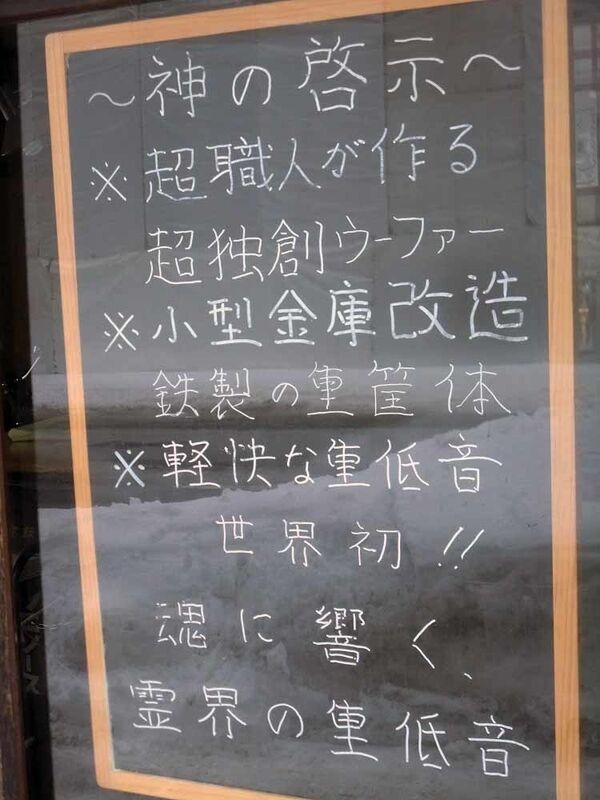 ～神の啓示～
※超職人が作る
超独創ウーファー
※小型金庫改造
鉄製の重筐体
※軽快な重低音
世界初!!
魂に響く、
霊界の重低音